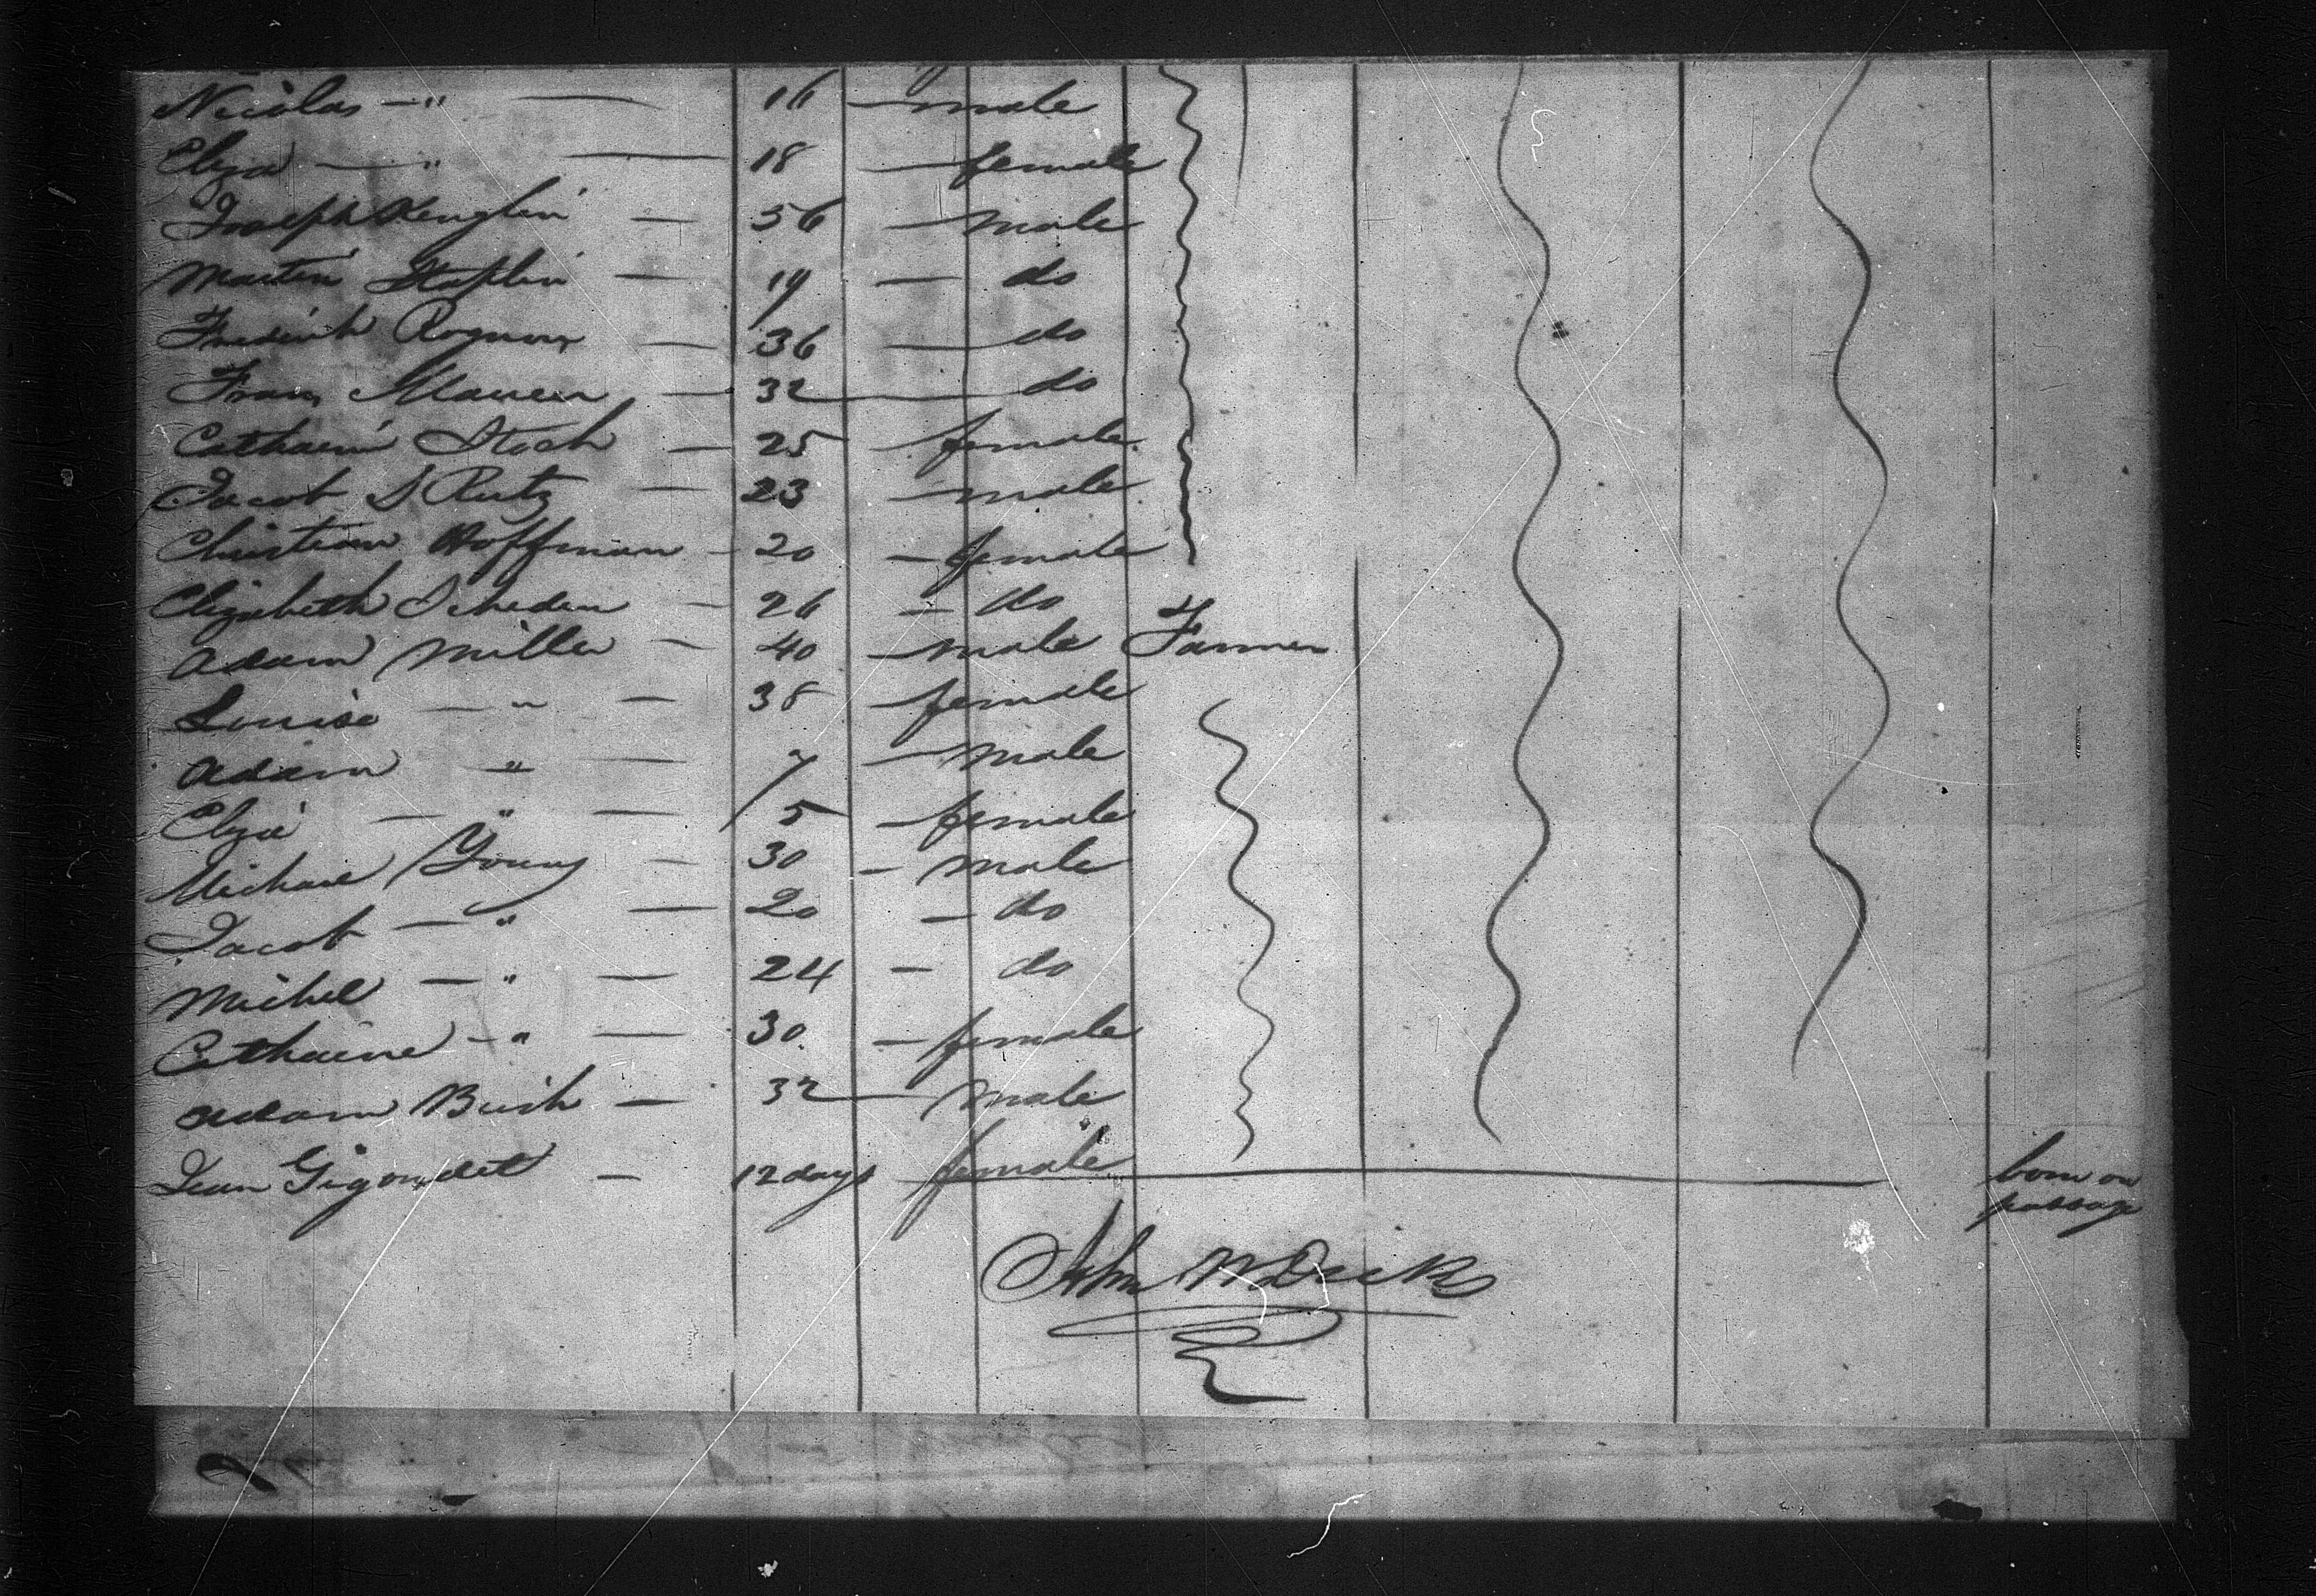 Nicolas — " — 16 — male
Eliza — " — 18 — female
Joseph Kenglin — 56 — male
Martin Staplin — 19 — do
Frederick — 36 — do
Franz — 32 — do
Catharin Stoch — 25 — female
Jacob S Rutz — 23 — male
Christian Hoffman — 20 — female
Elizabeth — 26 — do
Adam Miller — 40 — male Farmer
Louise — " — 38 — female
Adam " — 7 — male
Eliza — " — 5 — female
Michael Young — 30 — male
Jacob — " — 20 — do
Michel — " — 24 — do
Catharine — " — 30 — female
Adam Bush — 32 — male
Jean Gigondet — 12 days female — born on
passage
John W Dicks